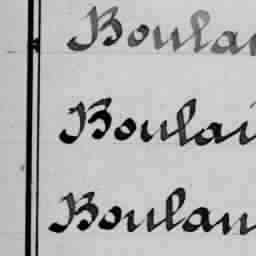 Boulan
Boulai
Boulan